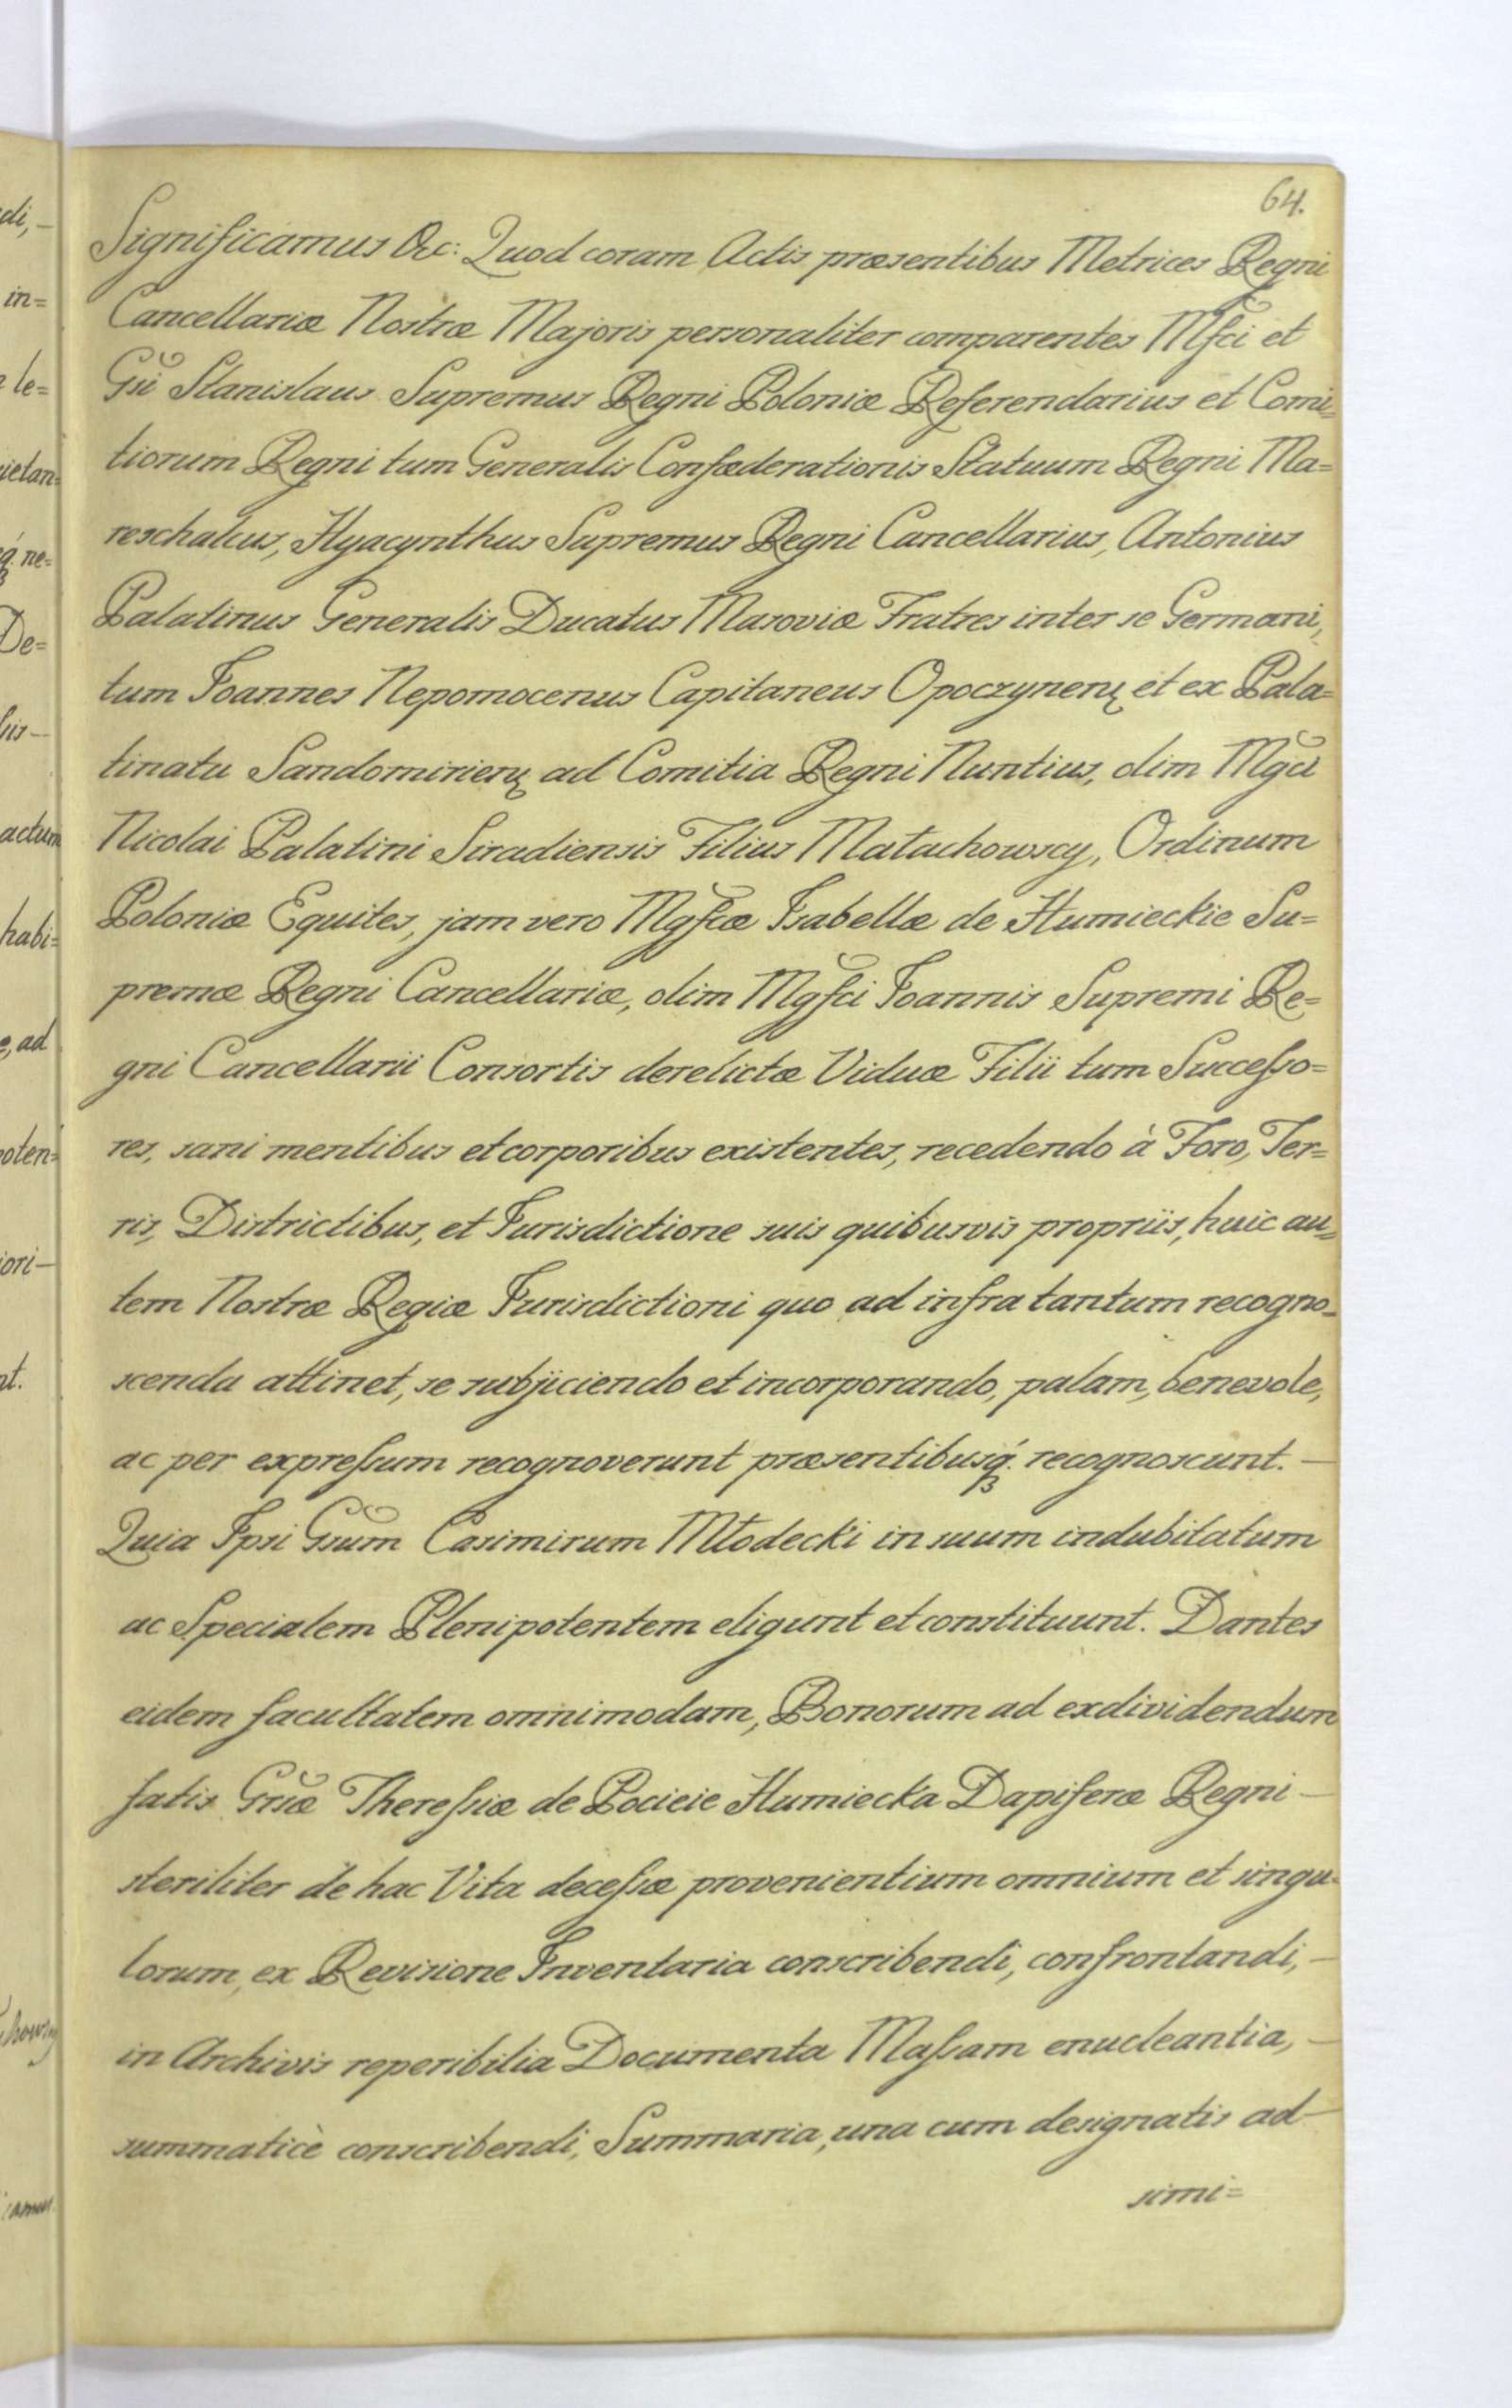 64.
Significamus &c: Quod coram Actis præsentibus Metrices Regni
Cancellariæ Nostræ Majoris personaliter comparentes Mfci et
Gii Stanislaus Supremus Regni Poloniæ Referendarius et Comi=
tiorum Regni tum Generalis Confæderationis Statuum Regni Ma=
reschalcus, Hyacynthus Supremus Regni Cancellarius, Antonius
Palatinus Generalis Ducatus Masoviæ Fratres inter se Germani,
tum Joannes Nepomocenus Capitaneus Opoczynenꝭ et ex Pala=
tinatu Sandomirienꝭ ad Comitia Regni Nuntius, olim Mgci
Nicolai Palatini Siradiensis Filius Małachowscy, Ordinum
Poloniæ Equites, jam vero Mgfcæ Isabellæ de Humieckie Su=
premæ Regni Cancellariæ, olim Mgfci Joannis Supremi Re=
gni Cancellarii Consortis derelictæ Viduæ Filii tum Successo=
res, sani mentibus et corporibus existentes, recedendo à Foro, Ter=
ris, Districtibus, et Jurisdictione suis quibusvis propriis, huic au=
tem Nostræ Regiæ Jurisdictioni quo ad infra tantum recogno=
scenda attinet, se subjiciendo et incorporando, palam, benevole,
ac per expressum recognoverunt præsentibusq́ꝫ recognoscunt. —
Quia Ipsi Gsum Casimirum Młodecki in suum indubitatum
ac Specialem Plenipotentem eligunt et constituunt. Dantes
eidem facultatem omnimodam, Bonorum ad exdividendum
fatis Gsæ Theressiæ de Pocieie Humiecka Dapiferæ Regni —
steriliter de hac Vita decessæ provenientium omnium et singu=
lorum, ex Revisione Inventaria conscribendi, confrontandi, —
in Archivis reperibilia Documenta Massam enucleantia, —
summaticè conscribendi, Summaria, una cum designatis ad —
simi=